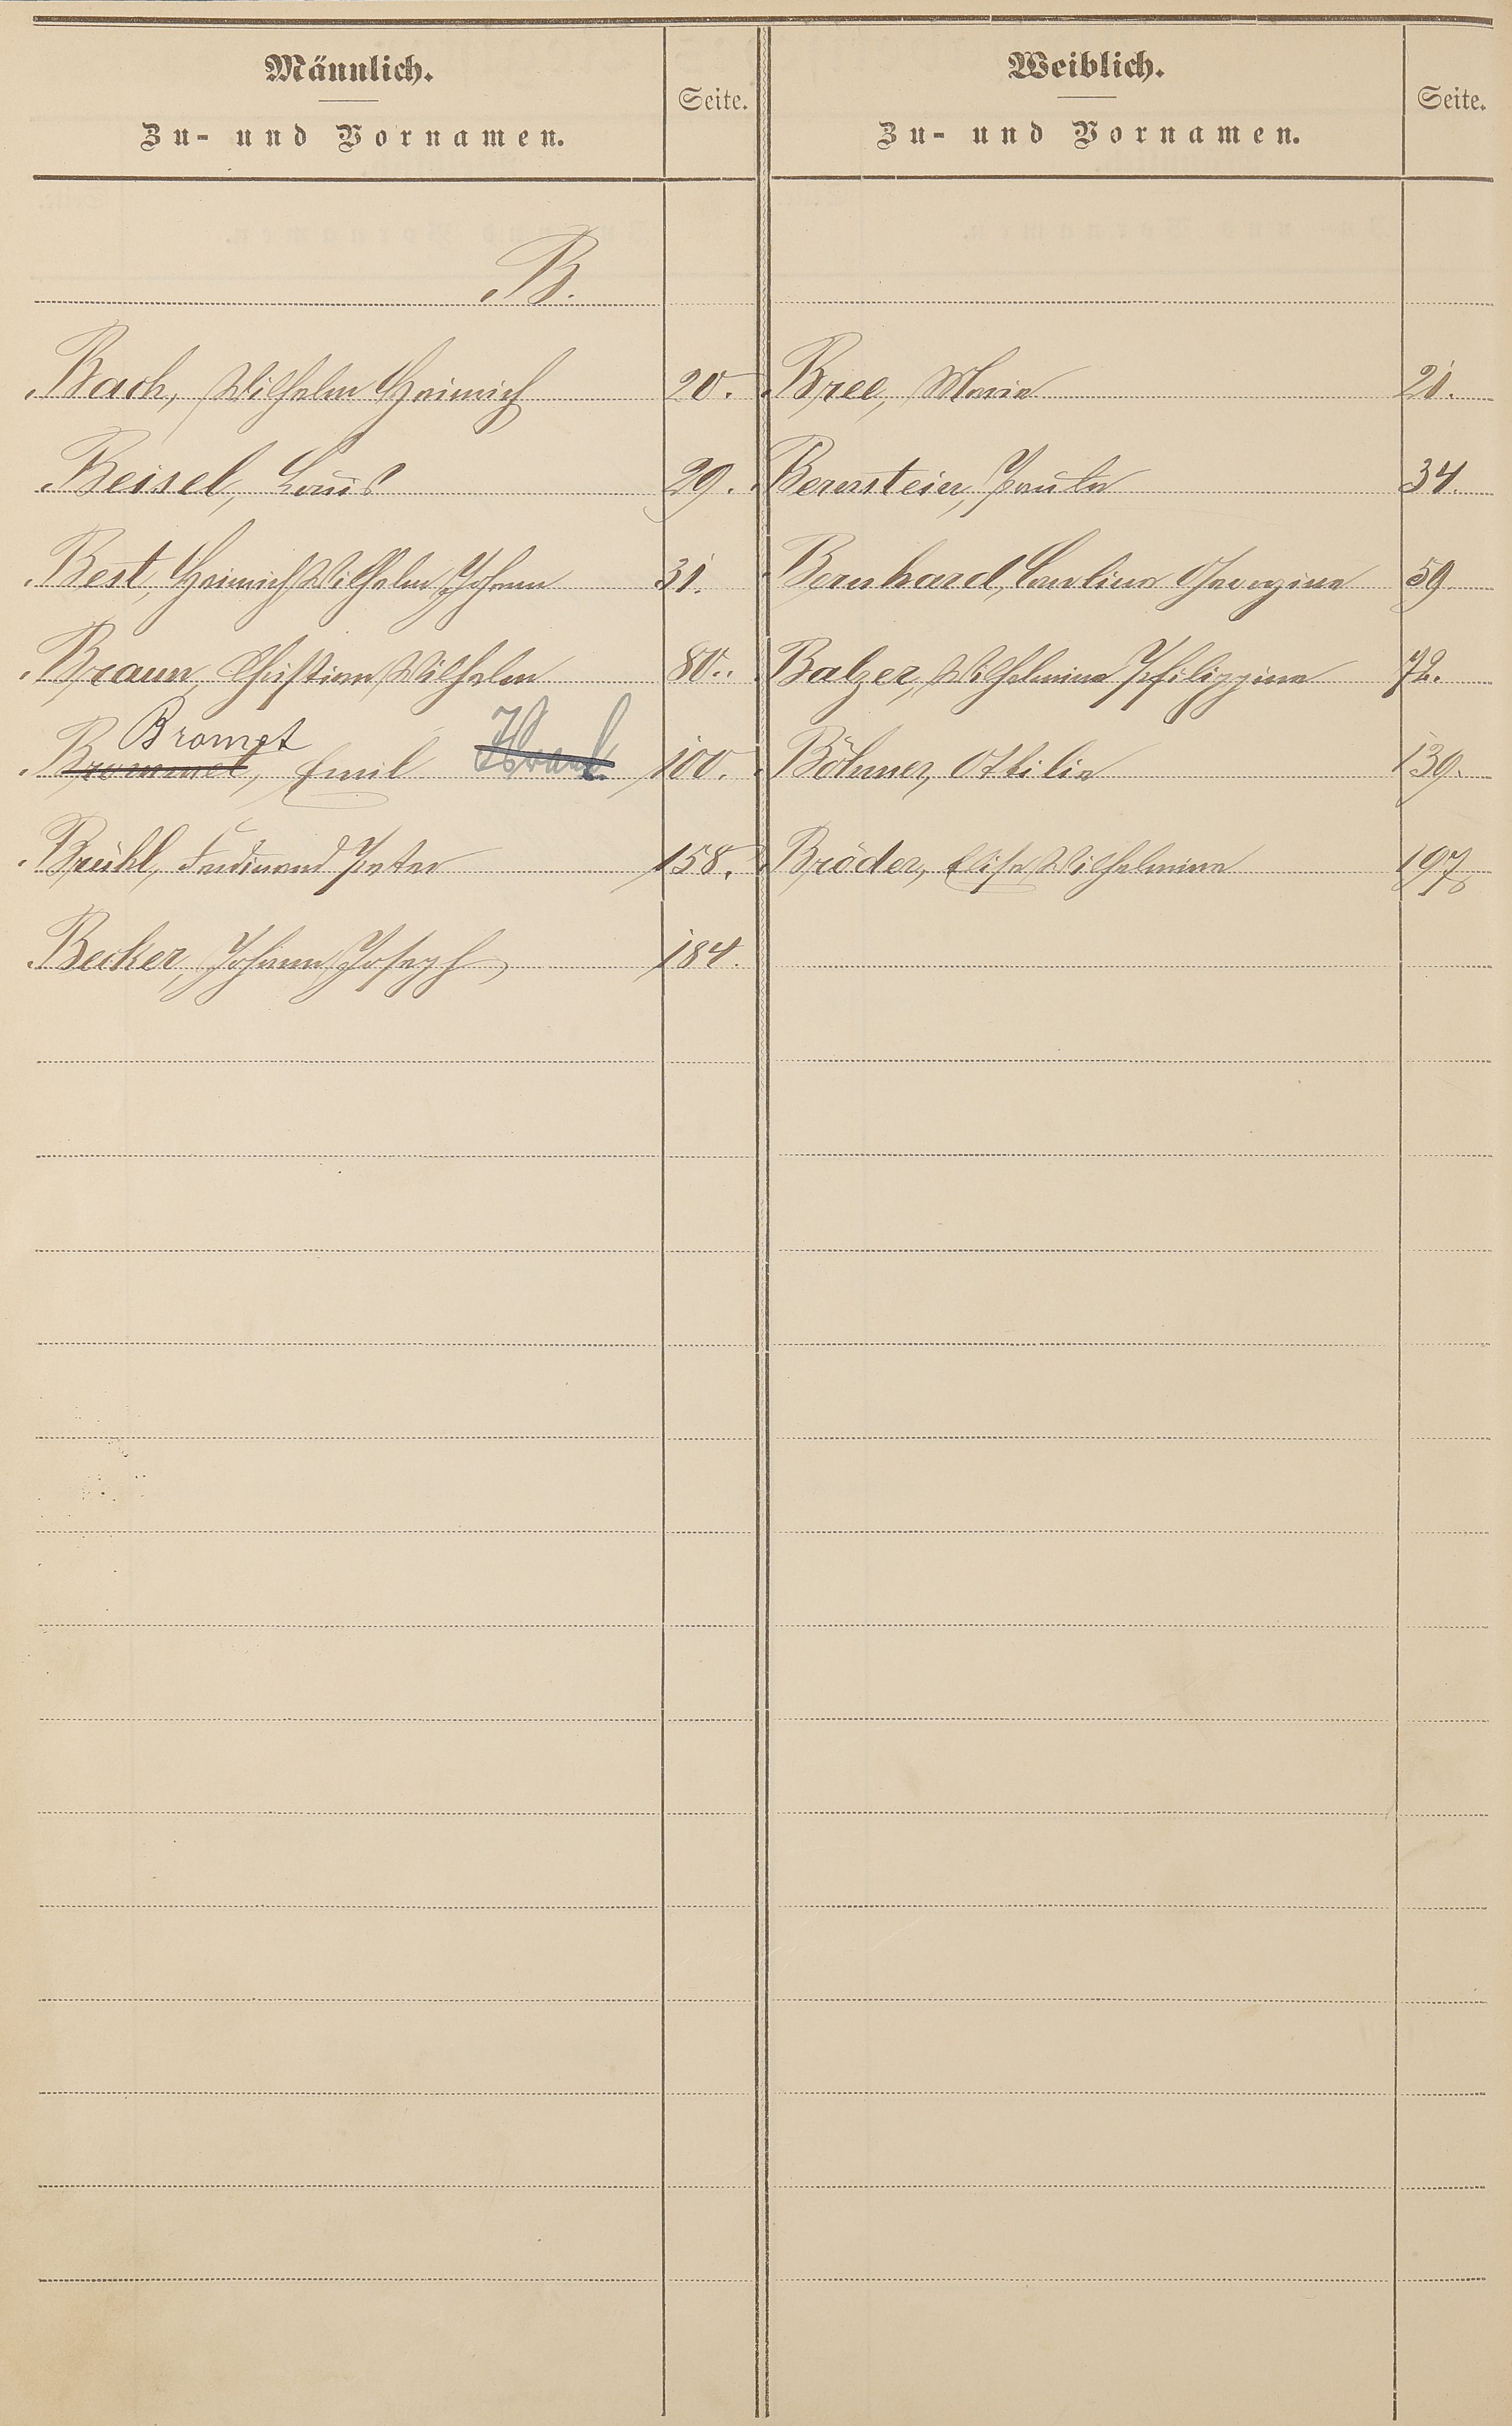 Männlich.
Zu- und Vornamen.
Seite.
Weiblich.
Zu- und Vornamen.
Seite.
B.
Bach, Wilhelm Heinrich 20. Bree, Marie 21.
Beisel, Louis 29. Bernstein, Paula 34.
Best, Heinrich Wilhelm Johann 31. Bernhard, Caroline Georgine 59
Braun, Christian Wilhelm 80. Balzer, Wilhelmine Philippine 72.
Bromet
Brommet, Emil 100. Böhmer, Ottilie 139.
Brühl, Ferdinand Peter 158. Bröder, Elise Wilhelmine 197
Becker, Johann Joseph 184.